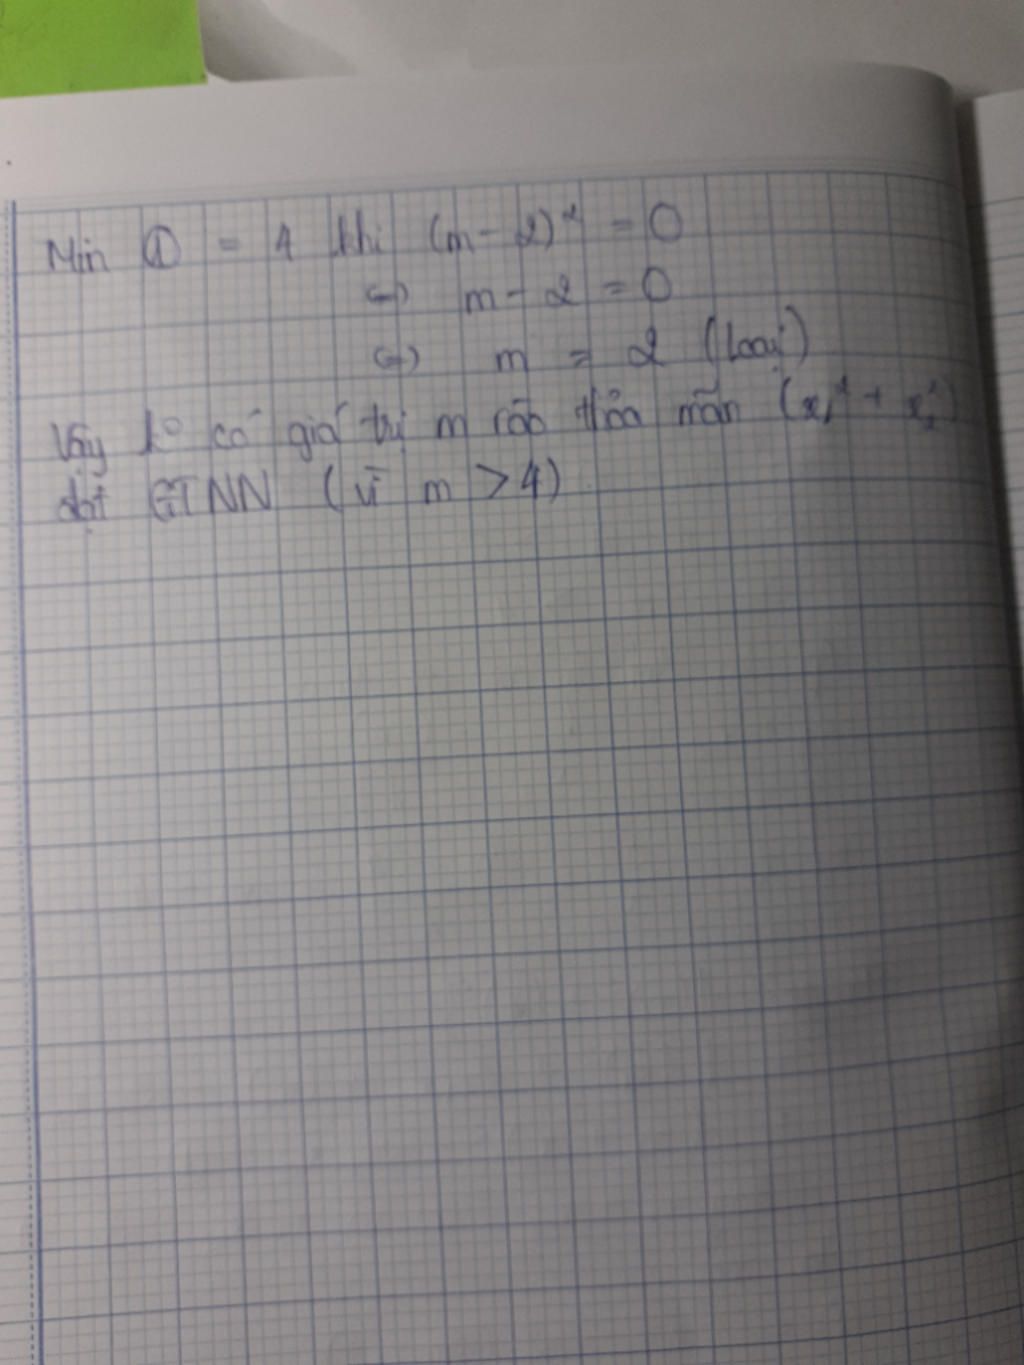 Min ① = 4 khi (m - 2)² = 0
<=> m - 2 = 0
<=> m = 2 (loại)
Vậy k° có giá trị m nào thỏa mãn (x₁² + x₂²)
đạt GTNN (vì m > 4)